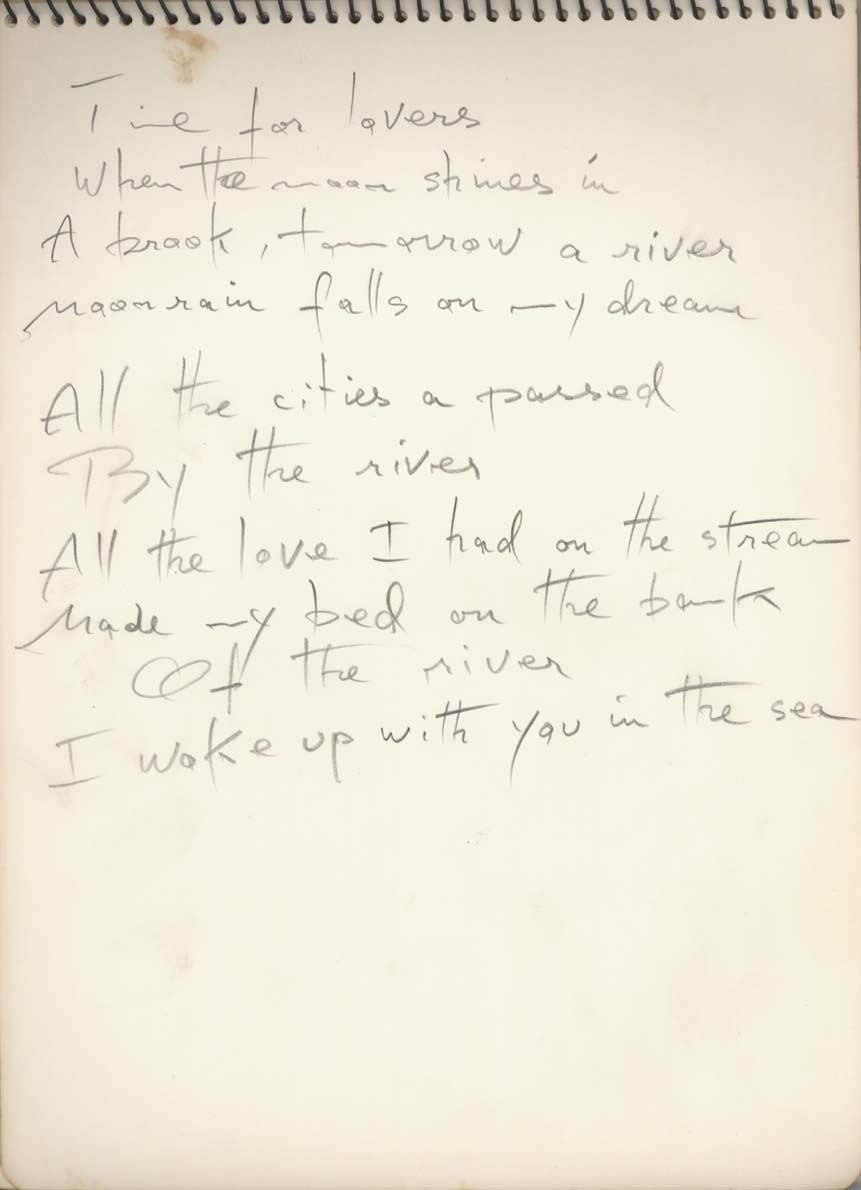 Time for lovers
When the moon shines in
A brook, tomorrow a river
Moonrain falls on my dream
All the cities a passed
By the river
All the love I had on the stream
Made my bed on the bank
Of the river
I wake up with you in the sea